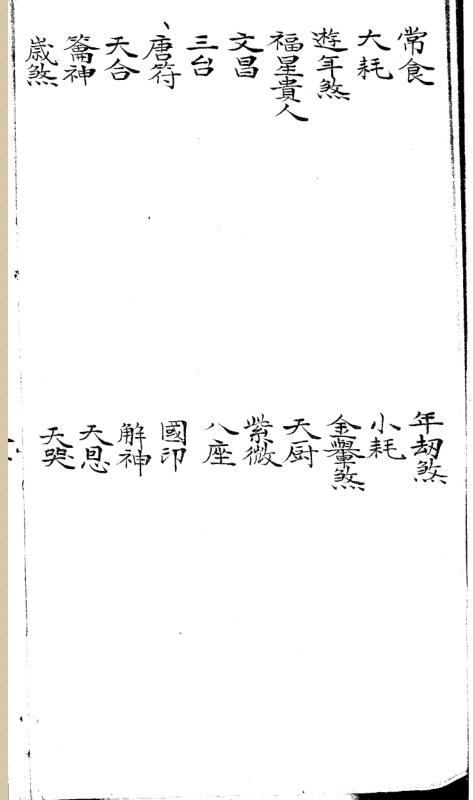 常食
年刼煞
大耗
小耗
遊年煞
金轝煞
福星貴人
天厨
文昌
紫微
三台
八座
唐符
國印
天合
解神
天恩
歲煞
天哭